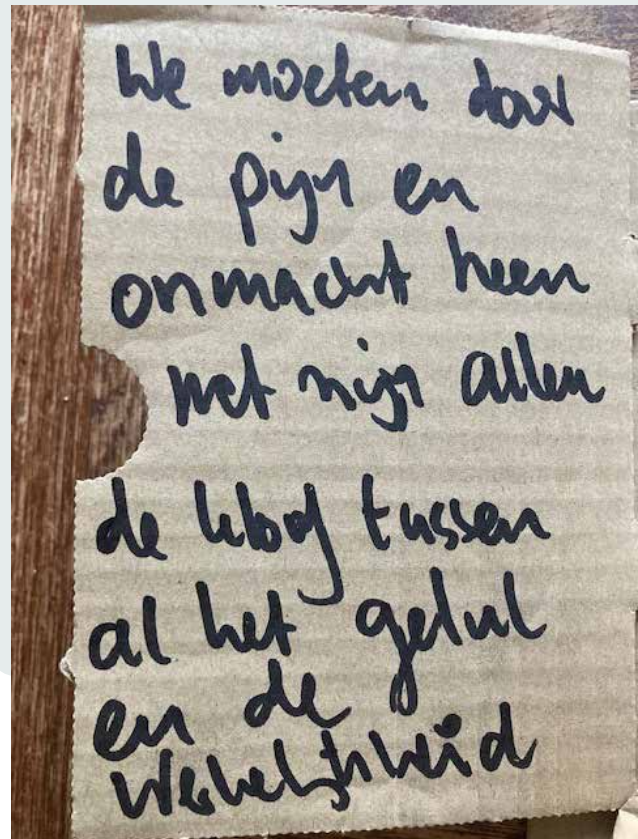 We moeten door
de pijn en
onmacht heen
met zijn allen
de kloof tussen
al het gelul
en de
werkelijkheid